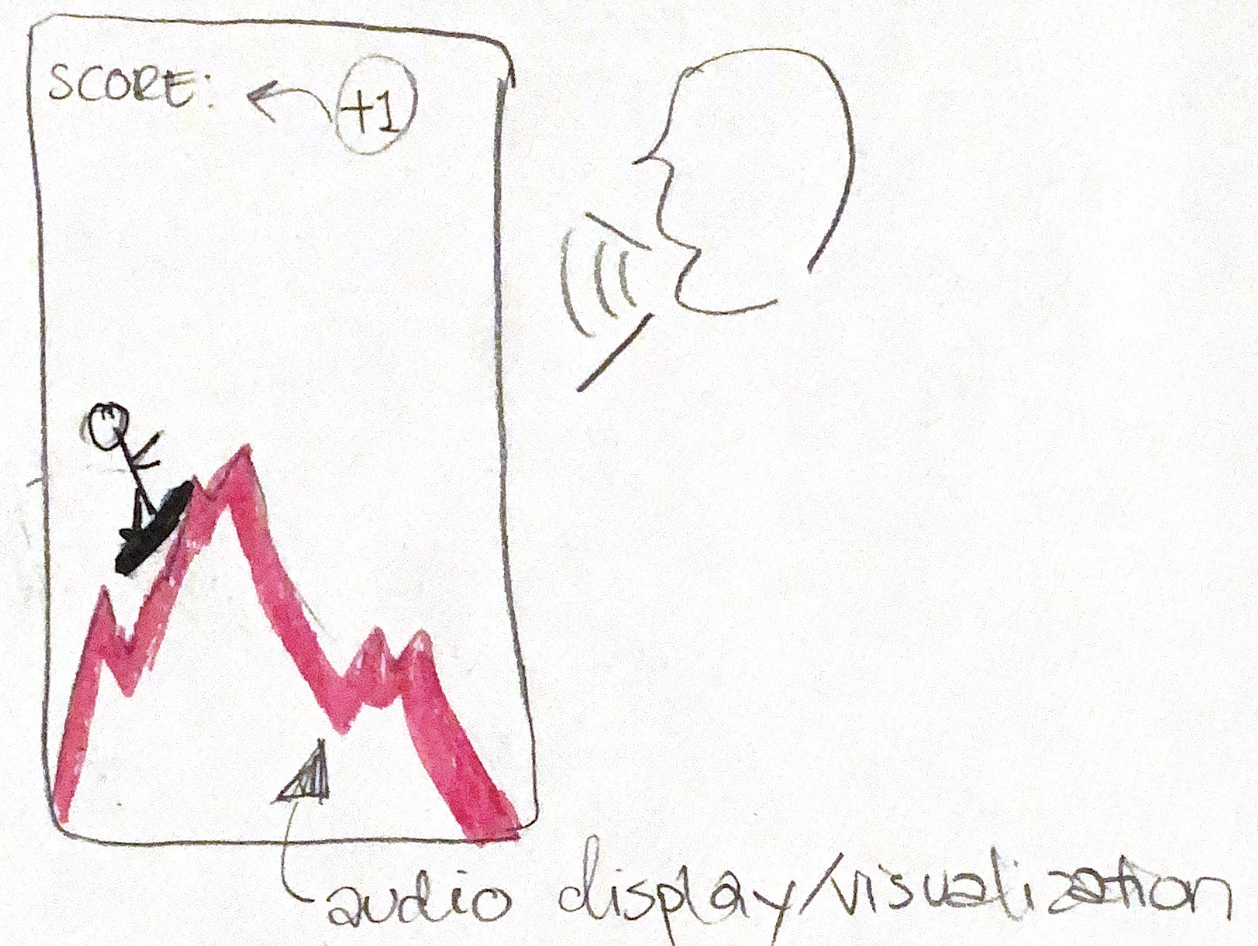 SCORE:
+1
audio display/visualization